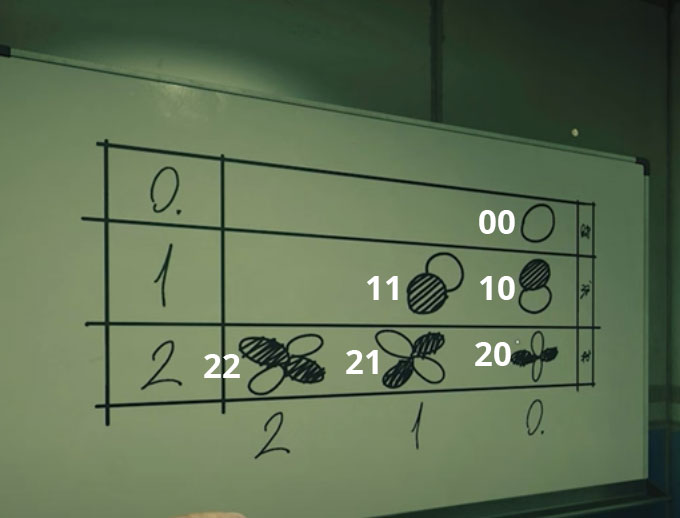 0. 00
1 11 10
2 22 21 20
2 1 0.